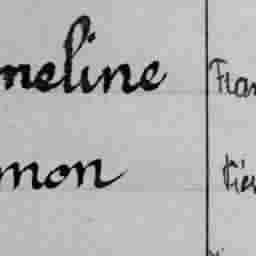 meline Fran
mon tier